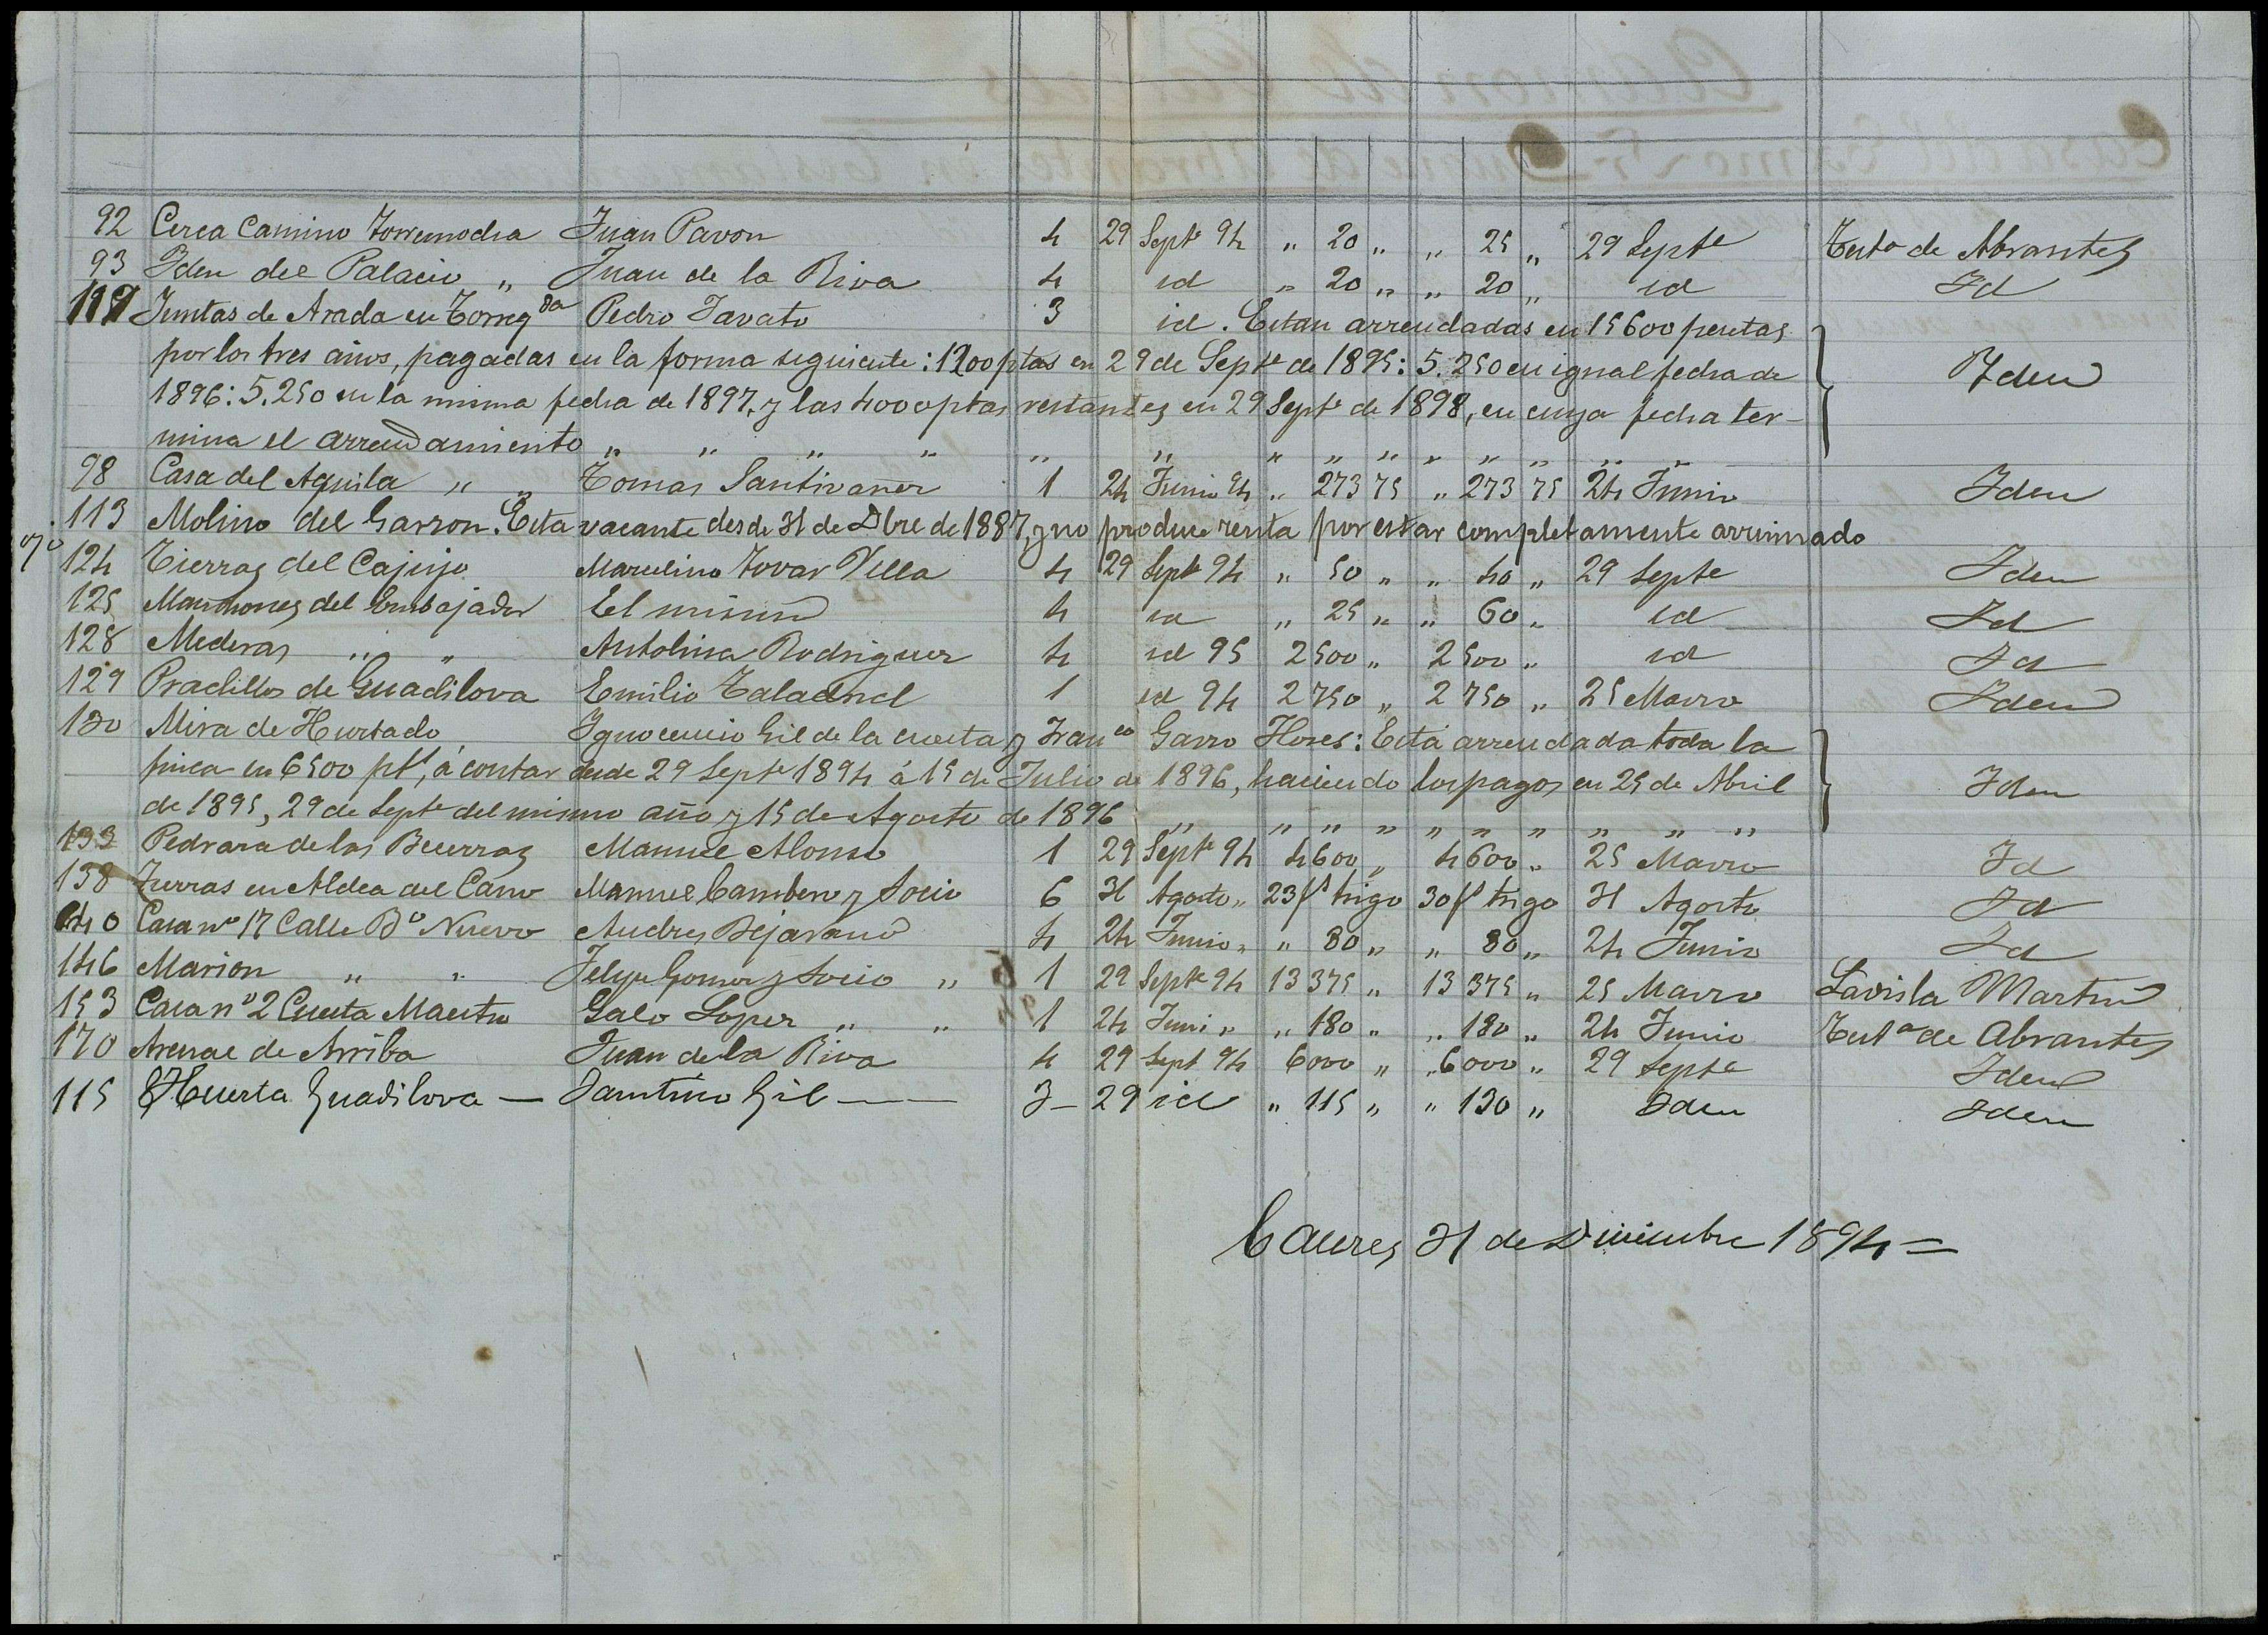 92 Cerca Camino Torremocha Juan Pavon 4 29 Septe 94 „ 20 „ „ 25 „ 29 Septe Testa de Abrantes
93 Iden del Palacio „ Juan de la Riva 4 id „ 20 „ „ 20 „ id Id
Juntas de Arada en Torreqda Pedro 3 id. Estan arrendadas en 15600 pesetas
por los tres años, pagadas en la forma siguiente: ptas en 29 de Septe de 1895: 5.250 en igual fecha de Iden
1896: 5.250 en la misma fecha de 1897, y las 4000 ptas restantes en 29 Septe de 1898, en cuya fecha ter-
mina el arrendamiento „ „ „ „ „ „ „ „ „ „ „ „ „ „
98 Casa del Aguila „ „ Tomas Santivañez 1 24 Junio 94 „ 273 75 „ 273 75 24 Junio Iden
113 Molino del Garron. Esta vacante desde 31 de Dbre de 1887, y no produce renta por estar completamente arruinado
124 Tierras del Marcelino Tovar Villa 4 29 Septe 94 „ 50 „ „ 40 „ 29 Septe Iden
125 del Embajador El mismo 4 id „ 25 „ „ 60 „ id Id
128 Mederas „ „ Antolina Rodriguez 4 id 95 2 500 „ 2 500 „ id Id
129 Pradillos de Guadilova Emilio Taladrid 1 id 94 2 750 „ 2 750 „ 25 Marzo Iden
130 Mira de Hurtado Ygnocencio Gil de la cuesta y Franco Garro Flores: Está arrendada toda la
finca en 6500 pts, á contar desde 29 Septe 1894 á 15 de Julio de 1896, haciendo los pagos en 25 de Abril Iden
de 1895, 29 de Septe del mismo año y 15 de Agosto de 1896 „ „ „ „ „ „ „ „ „ „
133 Pedraza de las Becerras Manuel Alonso 1 29 Septe 94 4 600 „ 4 600 „ 25 Marzo Id
138 en Aldea del Cano Manuel Cambero y Socio 6 31 Agosto „ 23 fs trigo 30 fs trigo 31 Agosto Id
140 Casa no 17 Calle Bo Nuevo Andres Bejarano 4 24 Junio „ „ 80 „ „ 80 „ 24 Junio Id
146 Marion „ „ Felipe Gomez y Socio „ 1 29 Septe 94 13 375 „ 13 375 „ 25 Marzo Lavisla Martin
153 Casa no 2 Cuesta Maestro Galo Lopez „ „ 1 24 Juni „ „ 180 „ „ 180 „ 24 Junio Testa de Abrantes
170 Arenal de Arriba Juan de la Riva 4 29 Sept 94 6000 „ „ 6000 „ 29 Septe Iden
115 Huerta Guadilova — Santino Gil — 3 - 29 id „ 115 „ „ 130 „ Iden Iden
Caceres 31 de Diciembre 1894 =